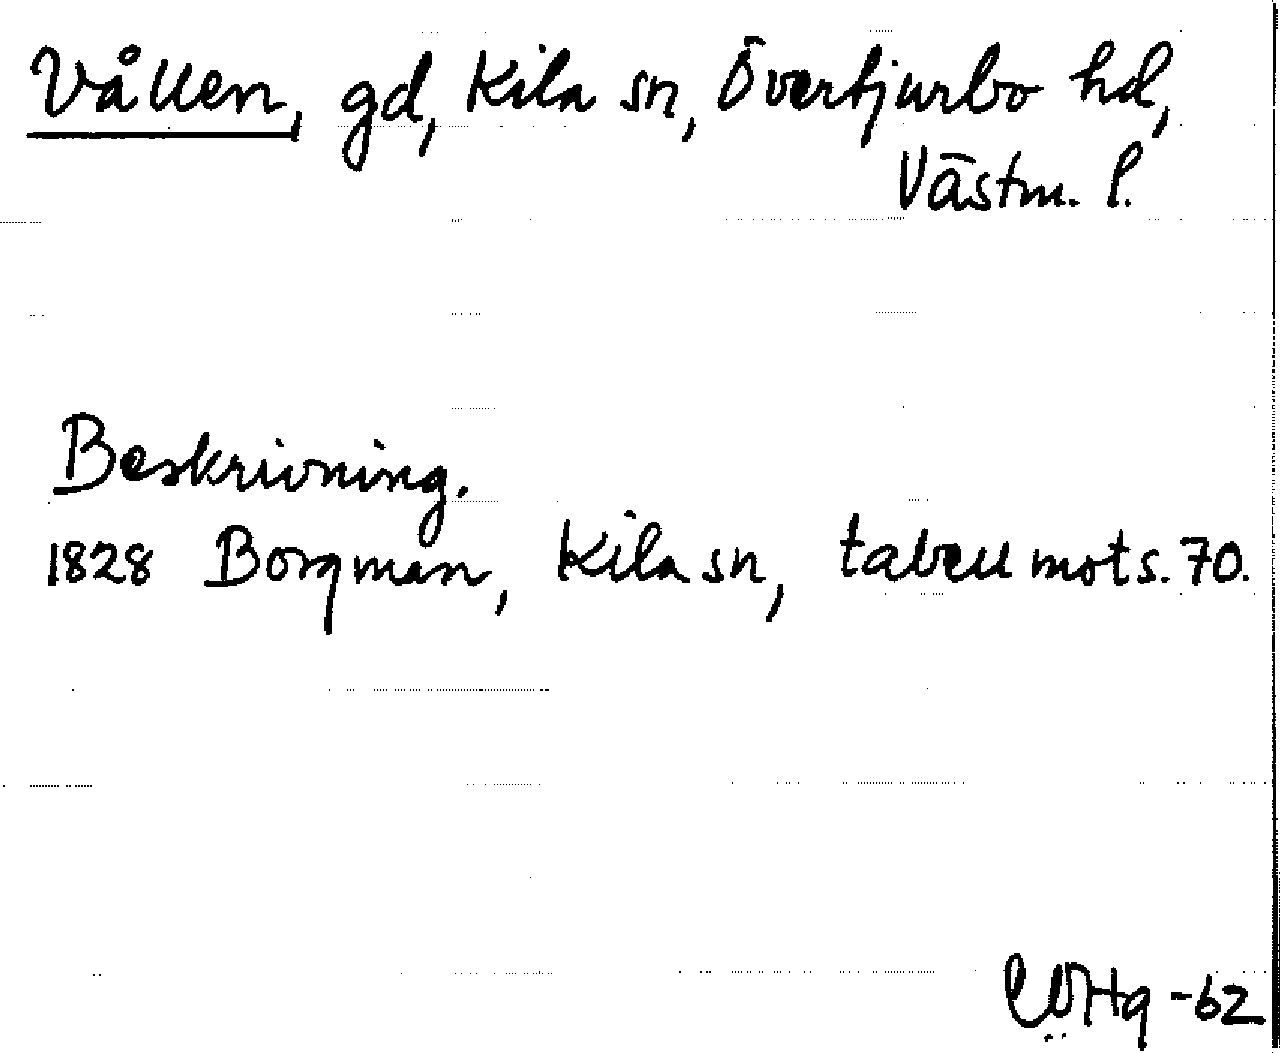 Vållen, gd, Kila sn, Övertjurbo hd,
Västm. l.
Beskrivning.
1828 Borgman, Kila sn, tabell mot s. 70.
-62